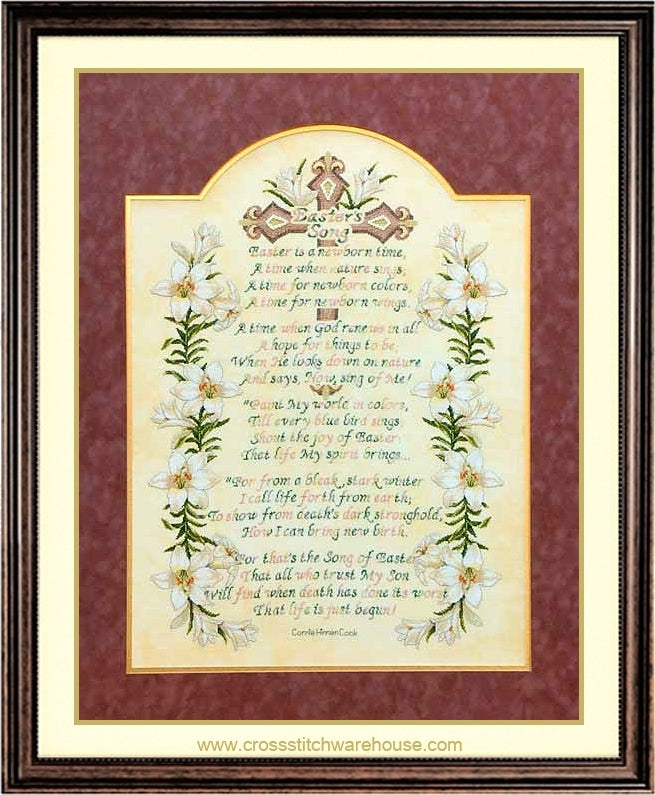 Easter's
Song
Easter is a newborn time,
A time when nature sings;
A time for newborn colors,
A time for newborn wings.
A time when God renews in all
A hope for things to be,
When He looks down on nature
And says, Now, sing of Me!
"Paint My world in colors,
Till every blue bird sings,
Shout the joy of Easter
That life My spirit brings...
"For from a bleak, stark winter
I call life forth from earth;
To show from death's dark stronghold,
How I can bring new birth.
For that's the Song of Easter
That all who trust My Son
Will find when death has done its worst
That life is just begun!
Cook
www.crossstitchwarehouse.com